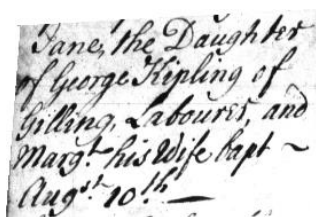 Jane, the Daughter
of George Kipling of
Gilling, Labourer, and
Margt. his Wife bapt ~
Augst. 10th —